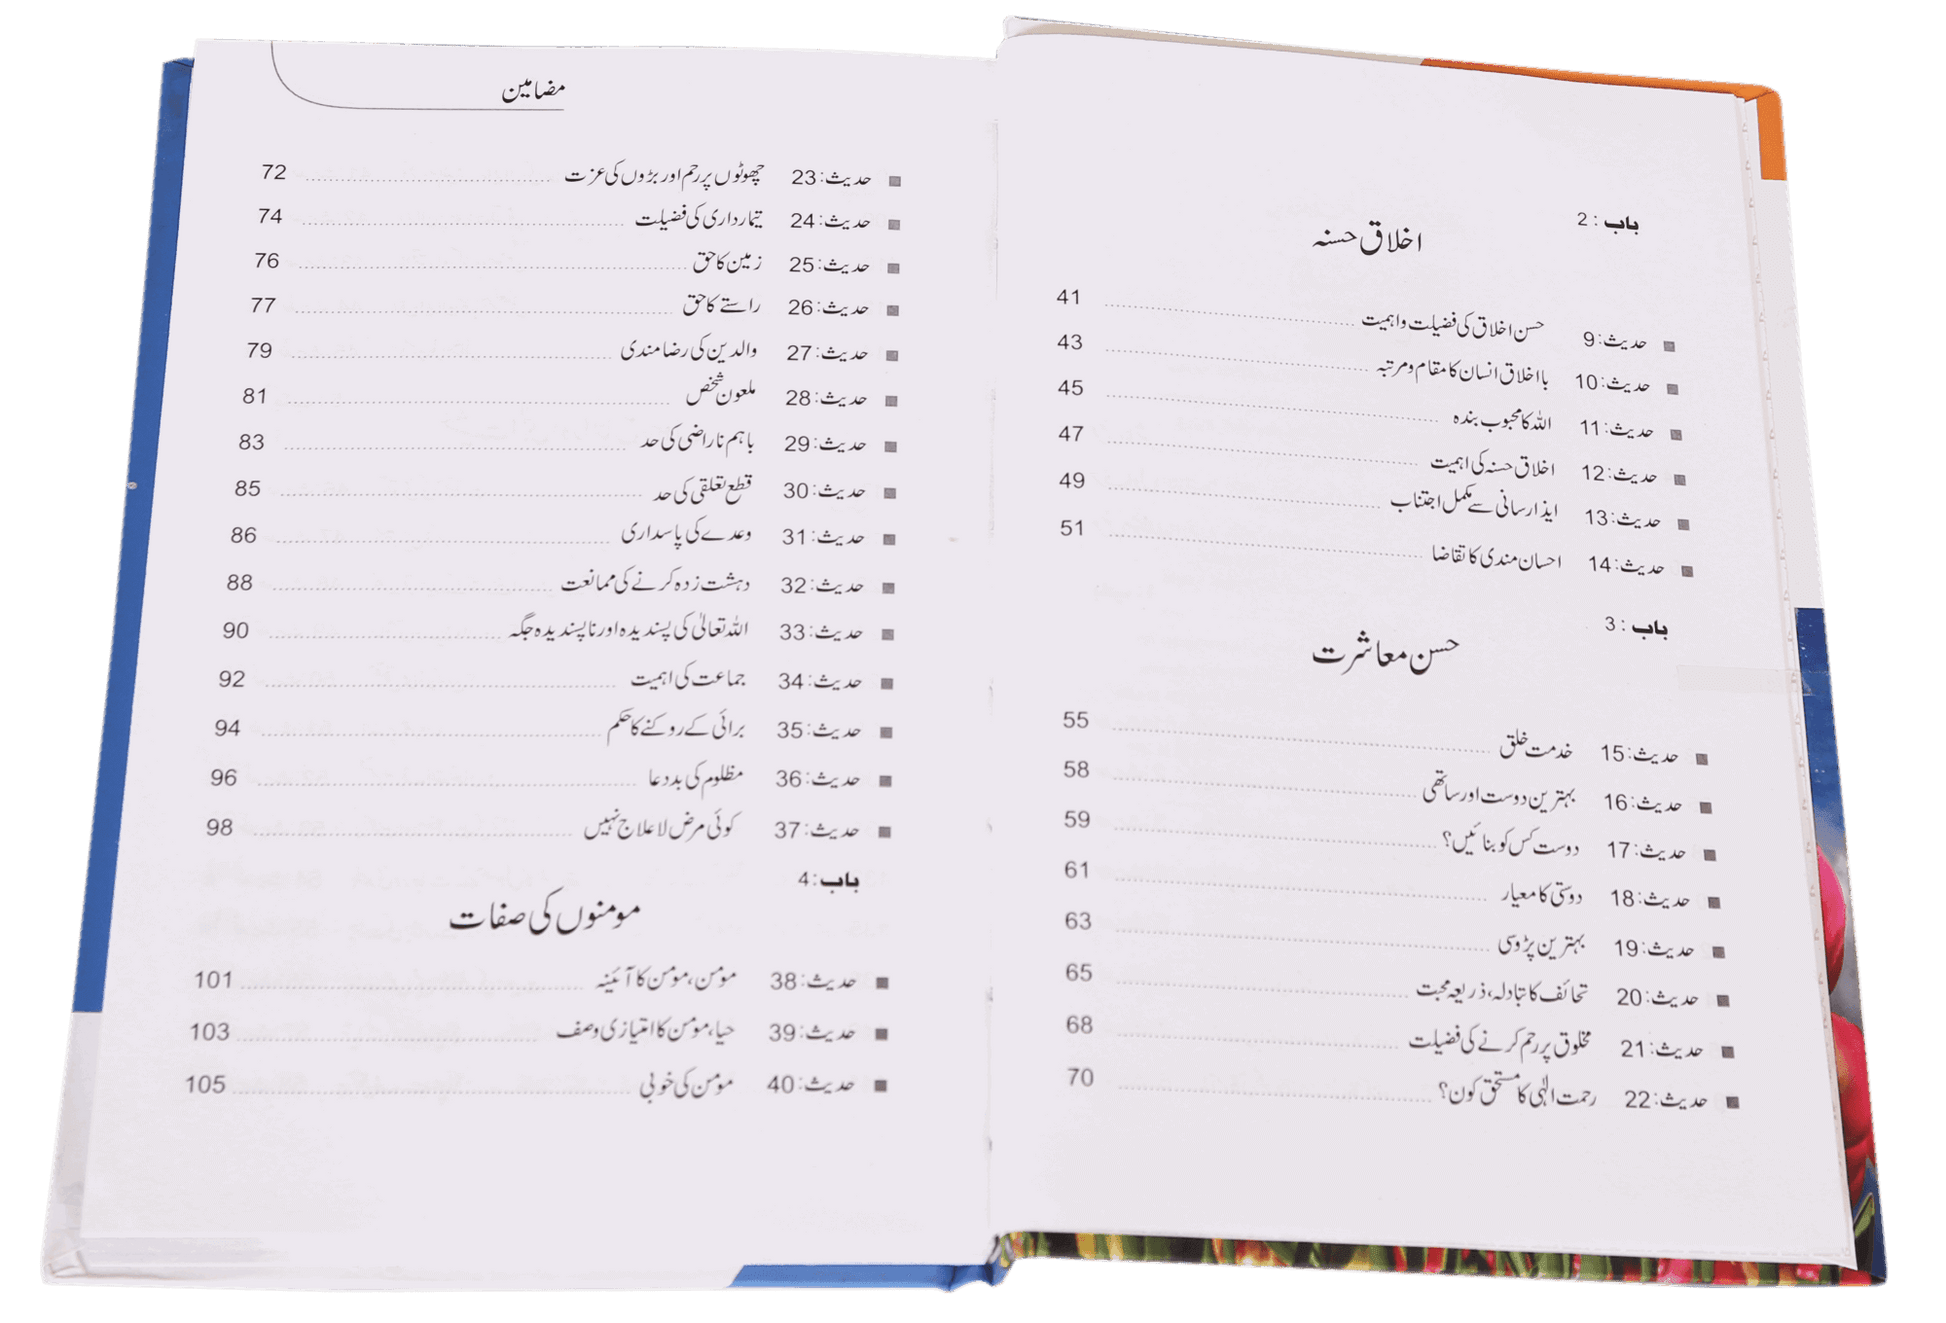 باب : 2
اخلاق حسنہ
حدیث: 9 حسن اخلاق کی فضیلت و اہمیت 41
حدیث: 10 با اخلاق انسان کا مقام و مرتبہ 43
حدیث: 11 اللہ کا محبوب بندہ 45
حدیث: 12 اخلاق حسنہ کی اہمیت 47
حدیث: 13 ایذا رسانی سے مکمل اجتناب 49
حدیث: 14 احسان مندی کا تقاضا 51
باب : 3
حسن معاشرت
حدیث: 15 خدمت خلق 55
حدیث: 16 بہترین دوست اور ساتھی 58
حدیث: 17 دوست کس کو بنائیں؟ 59
حدیث: 18 دوستی کا معیار 61
حدیث: 19 بہترین پڑوسی 63
حدیث: 20 تحائف کا تبادلہ، ذریعہ محبت 65
حدیث: 21 مخلوق پر رحم کرنے کی فضیلت 68
حدیث: 22 رحمت الٰہی کا مستحق کون؟ 70
مضامین
حدیث: 23 چھوٹوں پر رحم اور بڑوں کی عزت 72
حدیث: 24 تیمارداری کی فضیلت 74
حدیث: 25 زمین کا حق 76
حدیث: 26 راستے کا حق 77
حدیث: 27 والدین کی رضا مندی 79
حدیث: 28 ملعون شخص 81
حدیث: 29 باہم ناراضی کی حد 83
حدیث: 30 قطع تعلقی کی حد 85
حدیث: 31 وعدے کی پاسداری 86
حدیث: 32 دہشت زدہ کرنے کی ممانعت 88
حدیث: 33 اللہ تعالیٰ کی پسندیدہ اور ناپسندیدہ جگہ 90
حدیث: 34 جماعت کی اہمیت 92
حدیث: 35 برائی کے روکنے کا حکم 94
حدیث: 36 مظلوم کی بددعا 96
حدیث: 37 کوئی مرض لاعلاج نہیں 98
باب : 4
مومنوں کی صفات
حدیث: 38 مومن، مومن کا آئینہ 101
حدیث: 39 حیا، مومن کا امتیازی وصف 103
حدیث: 40 مومن کی خوبی 105